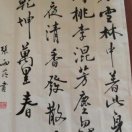 雪林中著此身
桃李混芳塵
夜清香發散
乾坤萬里春